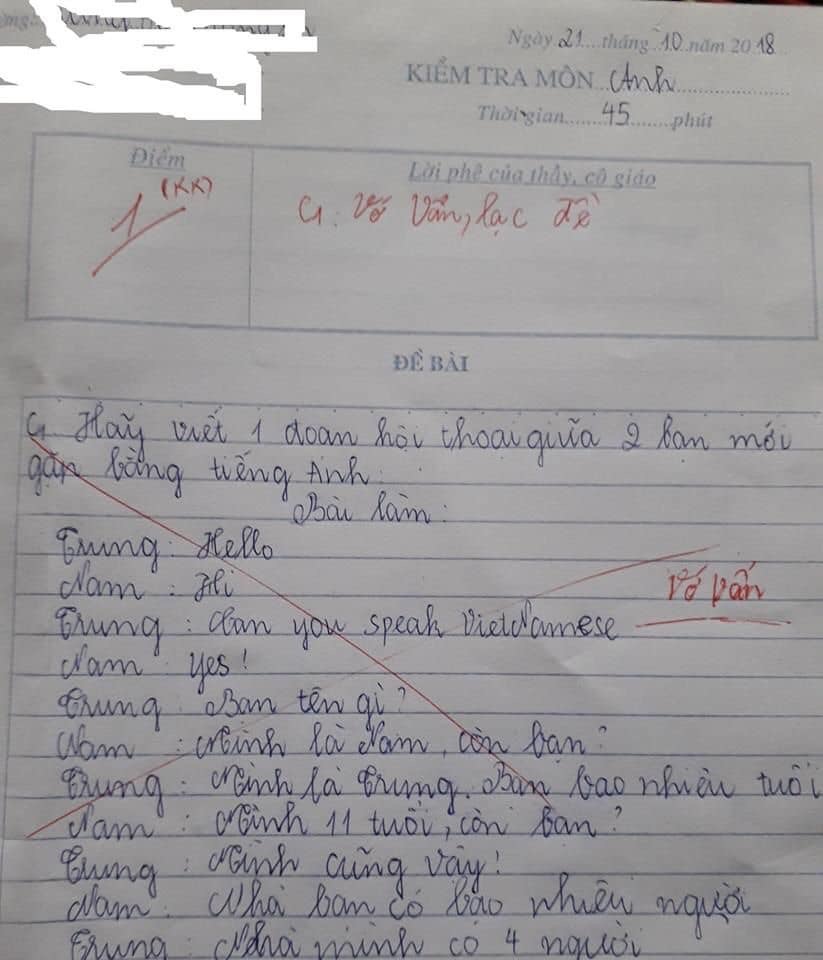 Ngày 21 tháng 10 năm 2018
KIỂM TRA MÔN Anh
Thời gian 45 phút
Điểm
Lời phê của thầy, cô giáo
1 (KK)
C1: Vớ Vẩn, lạc đề
ĐỀ BÀI
C1. Hãy viết 1 đoan hội thoai giữa 2 bạn mới
gặp bằng tiếng Anh.
Bài làm:
Trung: Hello
Nam: Hi
Vớ vẩn
Trung: Can you speak VietNamese
Nam: yes!
Trung: Bạn tên gì?
Nam: Mình là Nam, còn bạn?
Trung: Mình là Trung. Bạn bao nhiêu tuổi
Nam: Mình 11 tuổi, còn bạn?
Trung: Mình cũng vậy!
Nam: Nhà bạn có bao nhiêu người
Trung: Nhà mình có 4 người